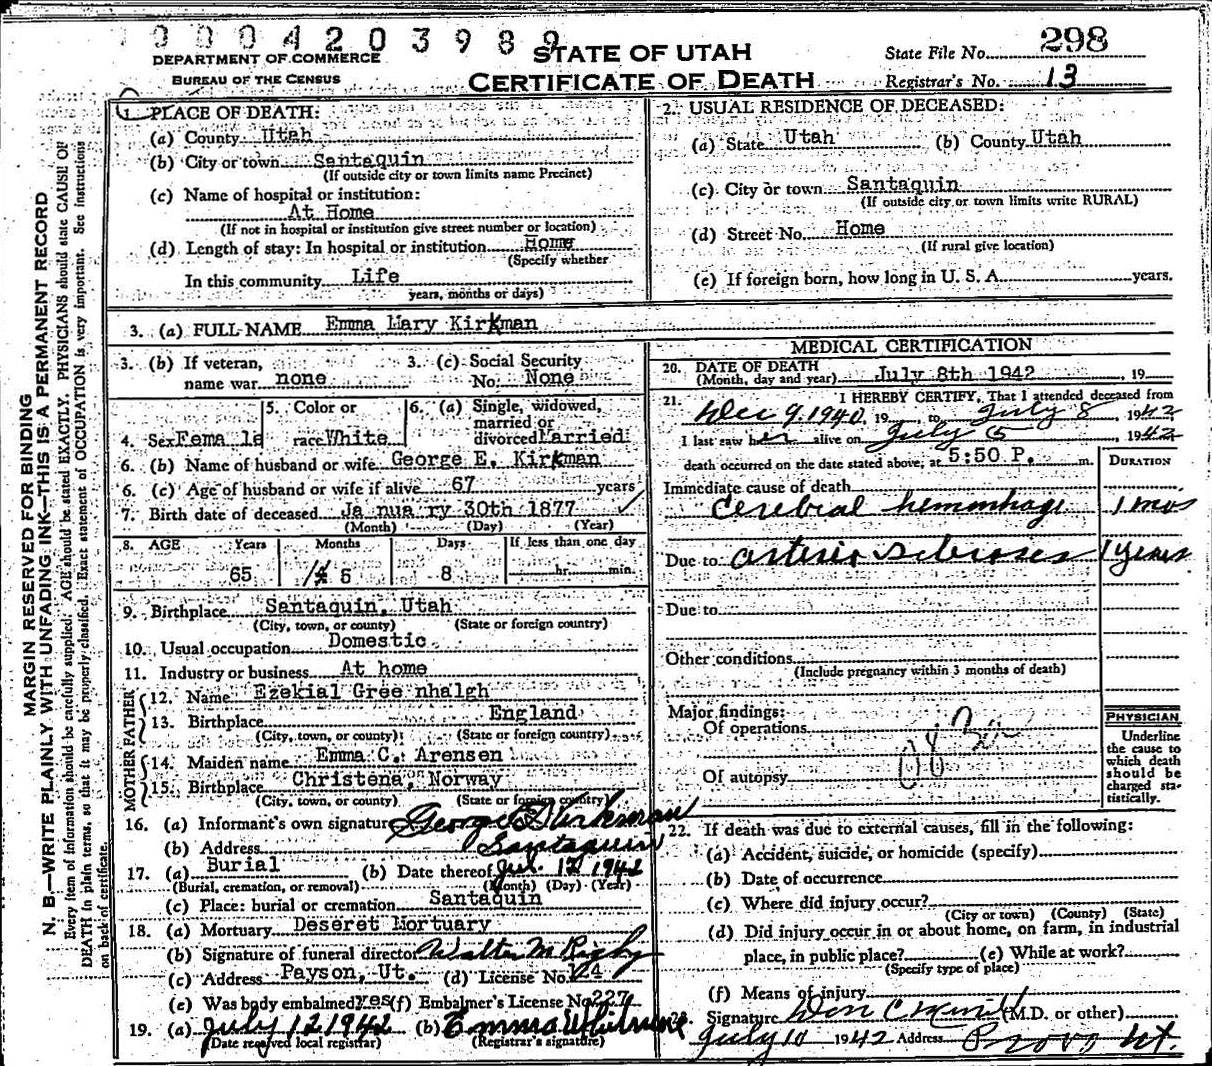 0004203989
DEPARTMENT OF COMMERCE
BUREAU OF THE CENSUS
STATE OF UTAH
CERTIFICATE OF DEATH
State File No. 298
Registrar's No. 13
MARGIN RESERVED FOR BINDING
N. B.—WRITE PLAINLY WITH UNFADING INK—THIS IS A PERMANENT RECORD
Every item of information should be carefully supplied. AGE should be stated EXACTLY. PHYSICIANS should state CAUSE OF
DEATH in plain terms, so that it may be properly classified. Exact statement of OCCUPATION is very important. See instructions
on back of certificate.
1. PLACE OF DEATH:
(a) County Utah
(b) City or town Santaquin
(If outside city or town limits name Precinct)
(c) Name of hospital or institution:
At Home
(If not in hospital or institution give street number or location)
(d) Length of stay: In hospital or institution Home
(Specify whether
In this community Life
years, months or days)
2. USUAL RESIDENCE OF DECEASED:
(a) State Utah (b) County Utah
(c) City or town Santaquin
(If outside city or town limits write RURAL)
(d) Street No. Home
(If rural give location)
(e) If foreign born, how long in U. S. A. years.
3. (a) FULL NAME Emma Mary Kirkman
3. (b) If veteran,
name war none
3. (c) Social Security
No. None
4. Sex Fema le
5. Color or
race White
6. (a) Single, widowed,
married or
divorced Married
6. (b) Name of husband or wife George E. Kirkman
6. (c) Age of husband or wife if alive 67 years
7. Birth date of deceased Ja nua ry 30th 1877
(Month) (Day) (Year)
8. AGE Years Months Days If less than one day
65 5 8 hr. min.
9. Birthplace Santaquin, Utah
(City, town, or county) (State or foreign country)
10. Usual occupation Domestic
11. Industry or business At home
FATHER
12. Name Ezekial Gree nhalgh
13. Birthplace England
(City, town, or county) (State or foreign country)
MOTHER
14. Maiden name Emma C. Arensen
15. Birthplace Christena, Norway
(City, town, or county) (State or foreign country)
16. (a) Informant's own signature George E Kirkman
(b) Address Santaquin
17. (a) Burial (b) Date thereof Jul. 12 1942
(Burial, cremation, or removal) (Month) (Day) (Year)
(c) Place: burial or cremation Santaquin
18. (a) Mortuary Deseret Mortuary
(b) Signature of funeral director Walter M Rigby
(c) Address Payson, Ut. (d) License No. 124
(e) Was body embalmed? yes (f) Embalmer's License No. 227
19. (a) July 12 1942 (b) Emma
(Date received local registrar) (Registrar's signature)
MEDICAL CERTIFICATION
20. DATE OF DEATH
(Month, day and year) July 8th 1942 , 19
21. I HEREBY CERTIFY, That I attended deceased from
Dec 9, 1940, 19 to July 8, 1942
I last saw her alive on July 5, 1942
death occurred on the date stated above, at 5:50 P. m.
DURATION
Immediate cause of death
Cerebral hemorrhage 1 mos
Due to arterio Sclerosis 1 years
Due to
Other conditions
(Include pregnancy within 3 months of death)
Major findings:
Of operations
Of autopsy
PHYSICIAN
Underline
the cause to
which death
should be
charged sta-
tistically.
22. If death was due to external causes, fill in the following:
(a) Accident, suicide, or homicide (specify)
(b) Date of occurrence
(c) Where did injury occur?
(City or town) (County) (State)
(d) Did injury occur in or about home, on farm, in industrial
place, in public place? (e) While at work?
(Specify type of place)
(f) Means of injury
23. Signature Don C (M.D. or other)
July 10 1942 Address Provo Ut.